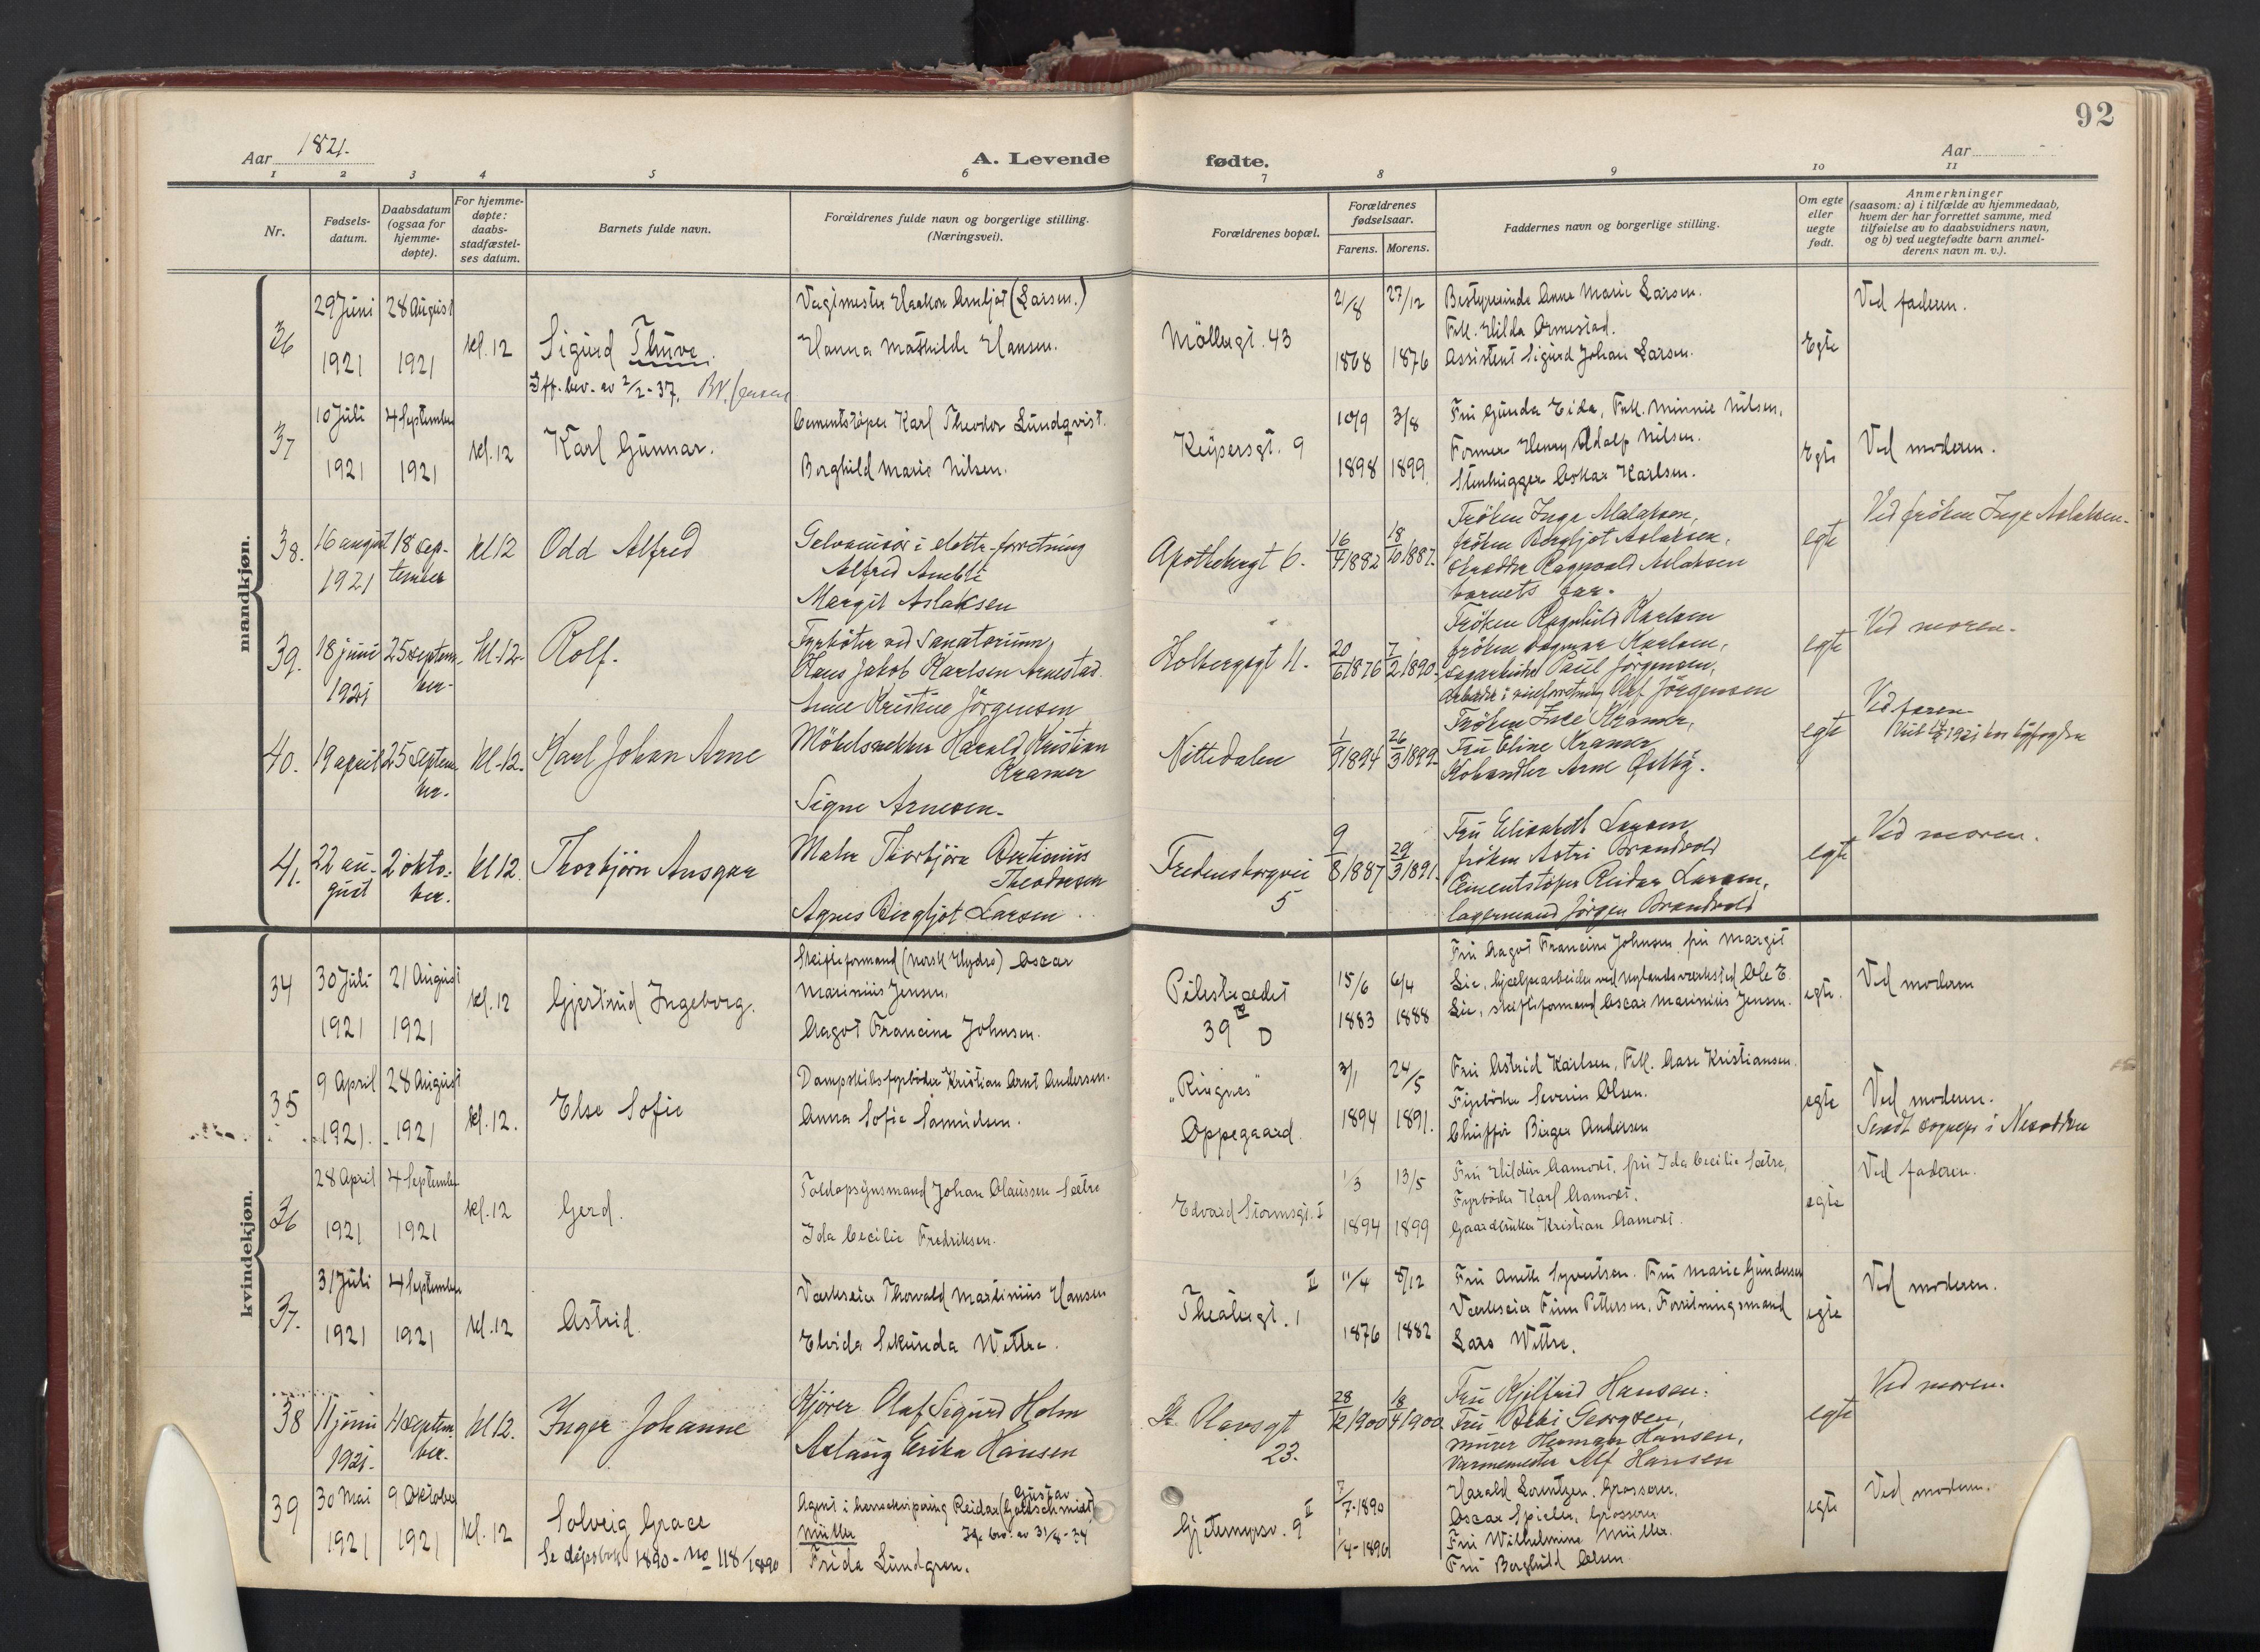 92
Aar 1821.
A. Levende
fødte.
Aar
1 2 3 4 5 6 7 8 9 10 11
Nr.
Fødsels-
datum.
Daabsdatum
(ogsaa for
hjemme-
døpte).
For hjemme-
døpte:
daabs-
stadfæstel-
ses datum.
Barnets fulde navn.
Forældrenes fulde navn og borgerlige stilling.
(Næringsvei).
Forældrenes bopæl.
Forældrenes
fødselsaar.
Farens. Morens.
Faddernes navn og borgerlige stilling.
Om egte
eller
uegte
født.
Anmerkninger
(saasom: a) i tilfælde av hjemmedaab,
hvem der har forrettet samme, med
tilføielse av to daabsvidners navn,
og b) ved uegtefødte barn anmel-
derens navn m. v.).
mandkjøn.
36
29 Juni
1921
28 August
1921
kl. 12
Sigurd Thuve.
Iff. bev. av 2/2-37.
Vagtmester Haakon Arnljot (Larsen.)
Hanna Mathilde Hansen.
Møllergt. 43
21/8
1868
27/12
1876
Bestyrerinde Anna Marie Larsen.
Frk. Hilda Ormestad.
Assistent Sigurd Johan Larsen.
Egte
Ved faderen.
37
10 Juli
1921
4 September
1921
kl. 12
Karl Gunnar.
Cementstøper Karl Theodor Lundqvist.
Borghild Marie Nilsen.
Keysersgt. 9
10/9
1898
3/8
1899
Fru Gunda Eide, Frk. Minnie Nilsen,
Former Henry Adolp Nilsen.
Stenhugger Oskar Karlsen.
Egte
Ved moderen.
38.
16 august
1921
18 sep-
tember
kl 12
Odd Alfred
Galvanisør i elektr. forretning
Alfred
Margit Aslaksen
Apothekergt 6.
16
4/1882
18
10/1887.
Frøken Inga Aslaksen,
frøken Bergljot Aslaksen,
skrædder Ragnvald Aslaksen
barnets far.
egte
Ved frøken Inga Aslaksen.
39.
18 juni
1921
25 septem-
ber.
kl. 12.
Rolf.
Fyrbøter ved Sanatorium,
Hans Jakob Karlsen Arnestad.
Anne Kristine Jørgensen
Holbergsgt 11.
20
6/1876
7
2/1890.
Frøken Ragnhild Karlsen
frøken Dagmar Karlsen,
Sagarbeider Paul Jørgensen,
Arbeider i vinforretning Alf Jørgensen
egte
Ved moren.
40.
19 april
25 septem-
ber.
kl. 12.
Karl Johan Arne
Møbelsnekker Harald Kristian
Kramer
Signe Arnesen.
Nittedalen
1
9/1894
26
3/1899
Frøken Ince Kramer,
Fru Eline Kramer
Kohandler Arne Østby.
egte
Ved faren
1921 hos byfogden
41.
22 au-
gust
2 okto-
ber.
kl 12.
Thorbjørn Ansgar
Maler Thorbjørn Bertinius
Theodorsen
Agnes Bergljot Larsen
Fredensborgvei
5
9
8/1887
29
3/1891.
Fru Elisabeth Larsen
frøken Astri Brandvold
Cementstøper Reidar Larsen,
lagermand Jørgen Brandvold
egte
Ved moren.
kvindekjøn.
34
30 Juli
1921
21 August
1921
kl. 12
Gjertrud Ingeborg.
Skifteformand (Norsk Hydro) Oscar
Marinius Jensen,
Aagot Francine Johnsen.
Pilestrædet
39 IV D
15/6
1883
6/4
1888
Fru Aagot Francine Johnsen, fru Margit
Lie, hjælpearbeider ved Nylands verksted Ole E.
Lie, skifteformand Oscar Marinius Jensen.
egte.
Ved moderen
35
9 April
1921.
28 August
1921
kl. 12.
Else Sofie
Dampskibsfyrbøder Kristian Arnt Andersen.
Anna Sofie Samuelsen.
"Ringnes"
Oppegaard.
3/1
1894
24/5
1891.
Fru Astrid Karlsen, Frk. Aase Kristiansen.
Fyrbøder Severin Olsen.
Chuffør Birger Andersen
egte
Ved moderen.
Sendt sognepr i Nesodden
36
28 April
1921
4 September
1921
kl. 12
Gerd.
Toldopsynsmand Johan Olaussen Sætre
Ida Cecilie Fredriksen.
Edvard Stormsgt. I
1/3
1894
13/5
1899
Fru Hildur Aamodt, fru Ida Cecilie Sætre,
Fyrbøder Karl Aamodt.
Gaardbruker Kristian Aamodt.
egte
Ved faderen.
37.
31 Juli
1921
4 September
1921
kl. 12
Astrid.
Værkseier Thorvald Martinius Hansen
Elvida Sekunda Wittre.
Theatergt. 1 II
11/4
1876
8/12
1882
Fru Anette Syvertsen. Fru Marie Gundersen
Værkseier Finn Pettersen, Forretningsmand
Lars Wittre.
egte
Ved moderen.
38
11 juni
1921.
4 septem-
ber.
kl 12.
Inger Johanne
Kjører Olaf Sigurd Holm
Aslaug Erika Hansen
St. Olavsgt
23.
28
12/1900
18
4/1900
Fru Kjelfrid Hansen.
Fru Bebi Georgsen,
murer Herman Hansen,
Varmemester Alf Hansen
egte
Ved moren.
39
30 Mai
1921
9 Oktober
1921
kl. 12
Solveig Grace
Se døpsbok 1890 - No 118/1890
Agent i herreekvipering Reidar Gustav (Goldschmidt)
Müller Ifø. bev. av 31/8-34
Frida Lundgren.
Gjetemyrsv. 9 II
7/7-1890
1/4-1896
Harald Lorentzen, Grosserer.
Oscar Spieler, Grosserer
Fru Wilhelmine Müller.
Fru Borghild Olsen.
egte
Ved moderen.